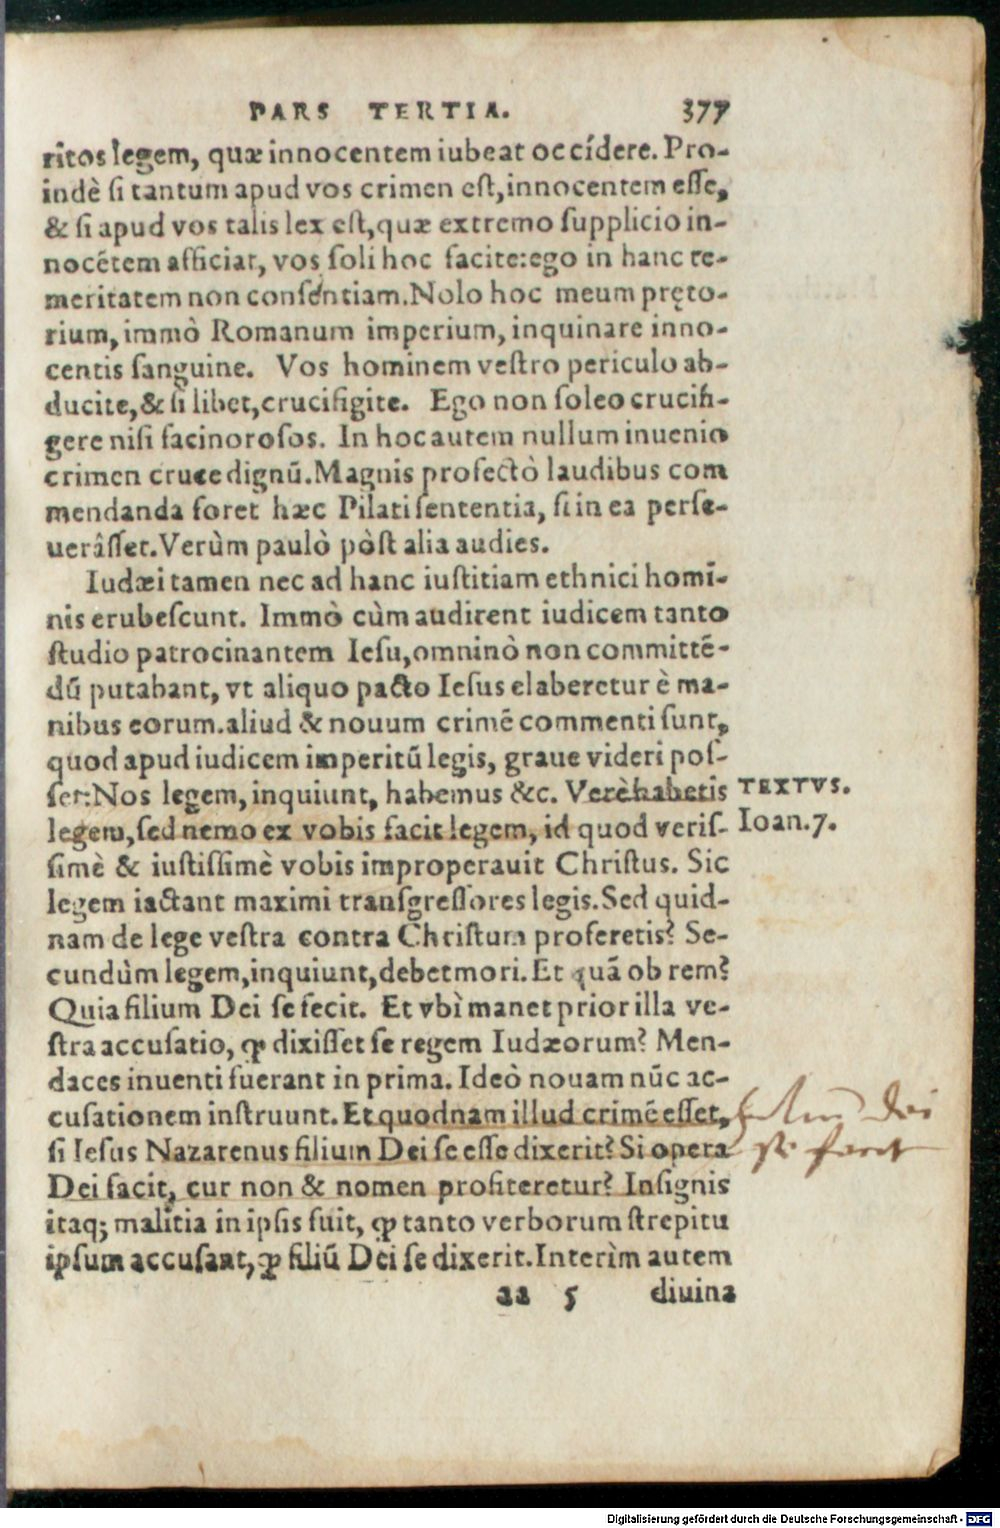 PARS TERTIA. 377
ritos legem, quæ innocentem iubeat occídere. Pro-
indè si tantum apud vos crimen est, innocentem esse,
& si apud vos talis lex est, quæ extremo supplicio in-
nocētem afficiat, vos soli hoc facite: ego in hanc te-
meritatem non consentiam. Nolo hoc meum pręto-
rium, immò Romanum imperium, inquinare inno-
centis sanguine. Vos hominem vestro periculo ab-
ducite, & si libet, crucifigite. Ego non soleo crucifi-
gere nisi facinorosos. In hoc autem nullum inuenio
crimen cruce dignū. Magnis profectò laudibus com
mendanda foret hæc Pilati sententia, si in ea perse-
uerâsset. Verùm paulò pòst alia audies.
Iudæi tamen nec ad hanc iustitiam ethnici homi-
nis erubescunt. Immò cùm audirent iudicem tanto
studio patrocinantem Iesu, omninò non committē-
dū putabant, vt aliquo pacto Iesus elaberetur è ma-
nibus eorum. aliud & nouum crimē commenti sunt,
quod apud iudicem imperitū legis, graue videri pos-
set: Nos legem, inquiunt, habemus &c. Verè habetis
TEXTVS.
legem, sed nemo ex vobis facit legem, id quod veris-
Ioan. 7.
simè & iustissimè vobis improperauit Christus. Sic
legem iactant maximi transgressores legis. Sed quid-
nam de lege vestra contra Christum proferetis? Se-
cundùm legem, inquiunt, debet mori. Et quā ob rem?
Quia filium Dei se fecit. Et vbì manet prior illa ve-
stra accusatio, ꝙ dixisset se regem Iudæorum? Men-
daces inuenti fuerant in prima. Ideò nouam nūc ac-
cusationem instruunt. Et quodnam illud crimē esset,
si Iesus Nazarenus filium Dei se esse dixerit? Si opera
Dei facit, cur non & nomen profiteretur? Insignis
itaq; malitia in ipsis fuit, ꝙ tanto verborum strepitu
ipsum accusant, ꝙ filiū Dei se dixerit. Interìm autem
aa 5 diuina
dei
se fecit
Digitalisierung gefördert durch die Deutsche Forschungsgemeinschaft - DFG